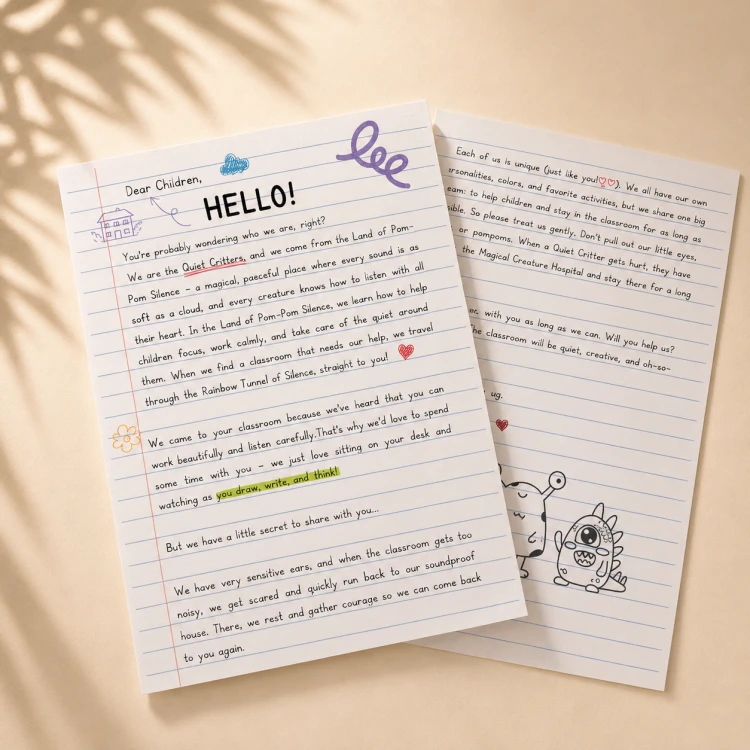 Dear Children,
HELLO!
You're probably wondering who we are, right?
We are the Quiet Critters, and we come from the Land of Pom-
Pom Silence – a magical, paeceful place where every sound is as
soft as a cloud, and every creature knows how to listen with all
their heart. In the Land of Pom-Pom Silence, we learn how to help
children focus, work calmly, and take care of the quiet around
them. When we find a classroom that needs our help, we travel
through the Rainbow Tunnel of Silence, straight to you!
We came to your classroom because we've heard that you can
work beautifully and listen carefully.That's why we'd love to spend
some time with you – we just love sitting on your desk and
watching as you draw, write, and think!
But we have a little secret to share with you...
We have very sensitive ears, and when the classroom gets too
noisy, we get scared and quickly run back to our soundproof
house. There, we rest and gather courage so we can come back
to you again.
Each of us is unique (just like you!). We all have our own
personalities, colors, and favorite activities, but we share one big
to help children and stay in the classroom for as long as
So please treat us gently. Don't pull out our little eyes,
or pompoms. When a Quiet Critter gets hurt, they have
the Magical Creature Hospital and stay there for a long
with you as long as we can. Will you help us?
The classroom will be quiet, creative, and oh-so-